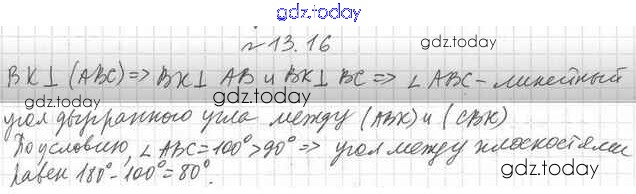 gdz.today
№ 13.16
gdz.today
BK⊥(ABC)=> BK⊥ AB и BK⊥ BC => ∠ ABC - линейный
gdz.today
угол двугранного угла между (ABK) и (CBK)
gdz.today
По условию, ∠ ABC=100°>90° => угол между плоскостями
gdz.today
равен 180°-100°=80°.
gdz.today